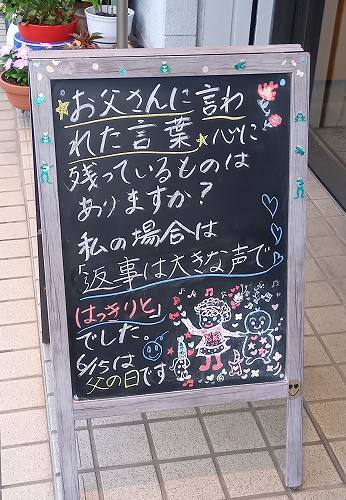 お父さんに言わ
れた言葉★心に
残っているものは
ありますか？
私の場合は
「返事は大きな声で
はっきりと」
でした。
6/15は
父の日です